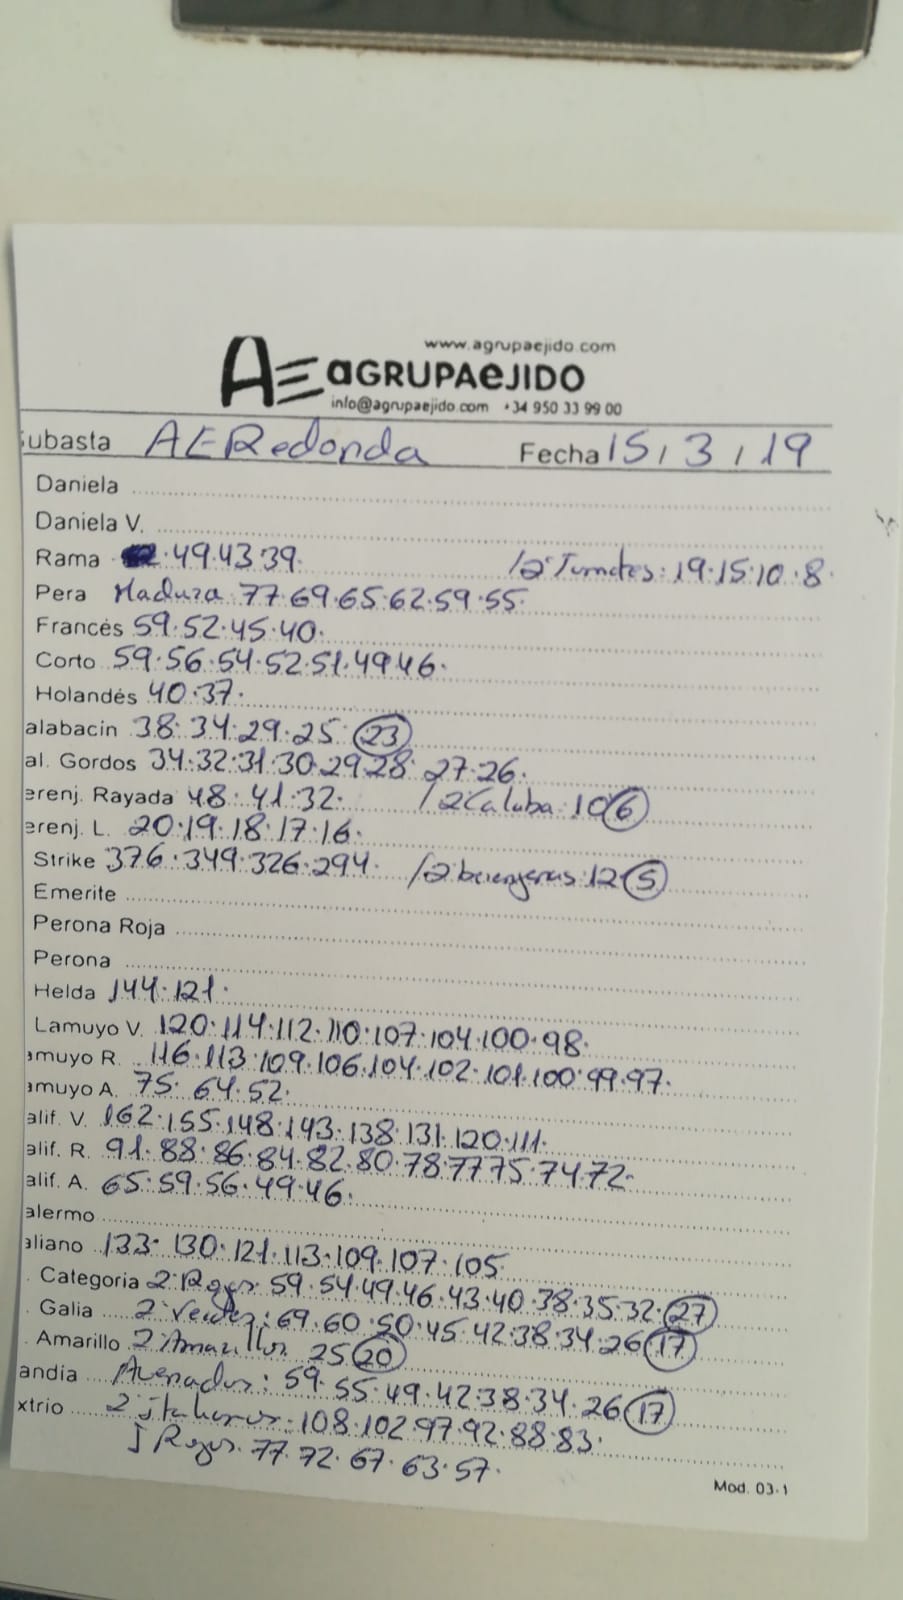 www.agrupaejido.com
AE aGRUPAeJIDO
info@agrupaejido.com +34 950 33 99 00
ubasta AE Redonda Fecha 15/3/19
Daniela
Daniela V.
Rama 49.43.39. /2ª Tomates: 19.15.10.8.
Pera Madura 77.69.65.62.59.55.
Francés 59.52.45.40.
Corto 59.56.54.52.51.49.46.
Holandés 40.37.
alabacín 38.34.29.25. 23
al. Gordos 34.32.31.30.29.28. 27.26.
erenj. Rayada 48.41.32. /2 Calaba: 10 6
erenj. L. 20.19.18.17.16.
Strike 376.349.326.294. /2 berenjenas: 12 5
Emerite
Perona Roja
Perona
Helda 144.121.
Lamuyo V. 120.114.112.110.107.104.100.98.
amuyo R. 116.113.109.106.104.102.101.100.99.97.
amuyo A. 75.64.52.
alif. V. 162.155.148.143.138.131.120.111.
alif. R. 91.88.86.84.82.80.78.77.75.74.72.
alif. A. 65.59.56.49.46.
alermo
aliano 133.130.121.113.109.107.105.
. Categoria 2ª Rojos 59.54.49.46.43.40.38.35.32. 27
. Galia 2ª Verdes: 69.60.50.45.42.38.34.26 17
. Amarillo 2 Amarillos 25 20
andía Asenados: 59.55.49.42.38.34.26 17
xtrio 2 italianos: 108.102.97.92.88.83.
J Rojos. 77.72.67.63.57.
Mod. 03-1